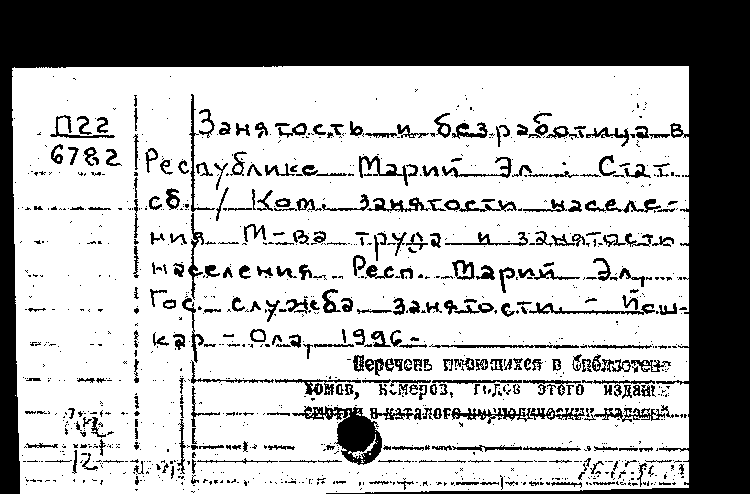 П22
6782
Занятость и безработица в
Республике Марий Эл : Стат.
сб. / Ком. занятости населе-
ния М-ва труда и занятости
населения Респ. Марий Эл,
Гос. служба занятости. - Йош-
кар-Ола, 1996-
Перечень имеющихся в библиотеке
томов, номеров, годов этого издания
смотри в каталоге периодических изданий
12